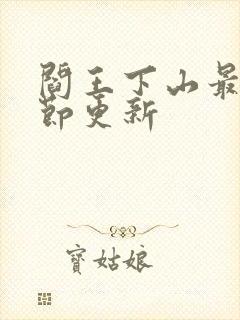 閻王下山最
節更新
寶姑娘